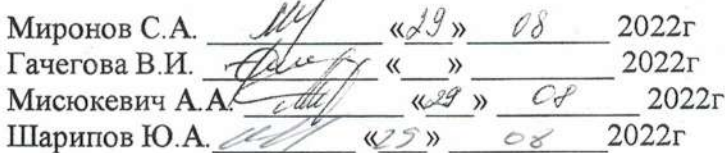 Миронов С.А. «29» 08 2022г
Гачегова В.И. « » 2022г
Мисюкевич А.А. «29» 08 2022г
Шарипов Ю.А. «29» 08 2022г